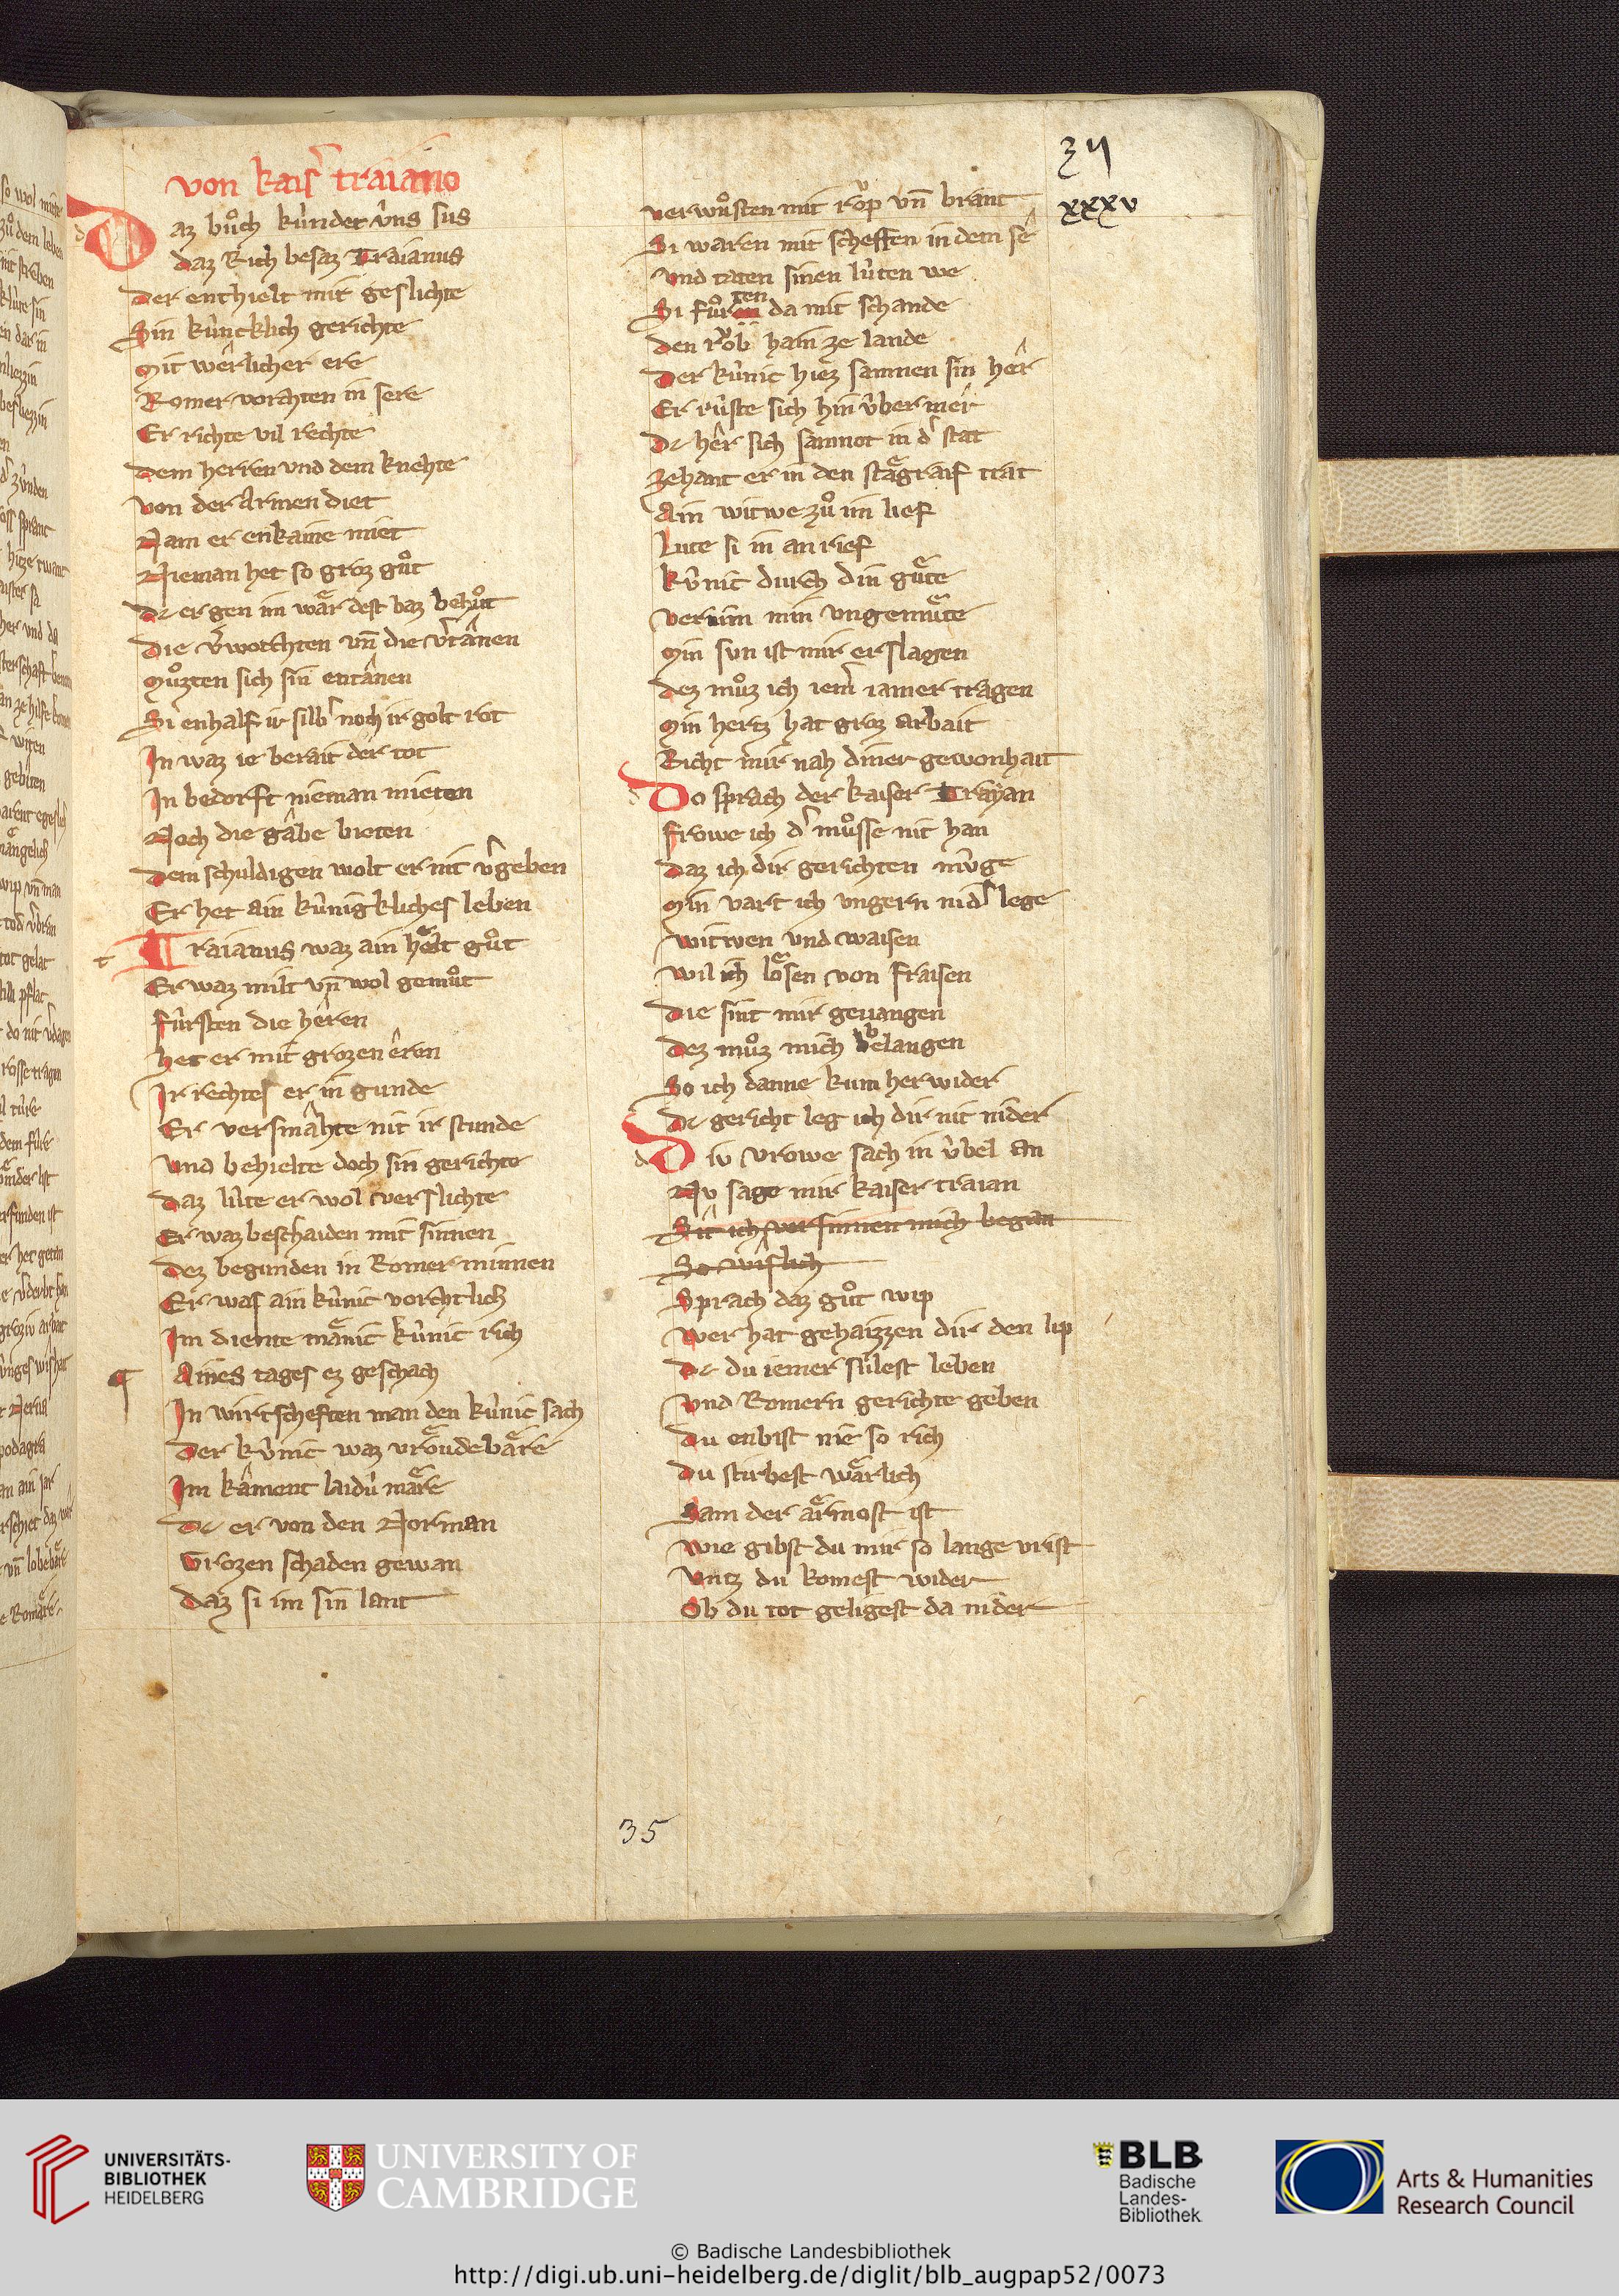 von kaiſ᷑ traiano
Daz bůch kúndet v̂ns sus
daz Rich besaz Traianus
der enthielt mit geslichte
Sin kúncklich gerichte
Mit wêrlicher ere
Romer vorchten in sere
Er richte vil rechte
dem herren vnd dem knehte
von der Armen diet
Nam er enkaine miet
Nieman het so groz gůt
dc er gen im wår dest baz behůt
die v᷑worchten vn̄ die v᷑tânen
Můzten sich sin entânen
Si enhalf ir silb᷑ noch ir golt rot
In waz ie berait der tot
In bedorft nieman mieten
Noch die gâbe bieten
dem schuldigen wolt er nit v᷑geben
Er het ain kúnigkliches leben
t Traianus waz ain hêlt gůt
Er waz milt vn̄ wol gemůt
fúrsten die hêren
het er mit grozen êren
Ir rechtes er in gunde
Er versmâhte nit ir stunde
vnd behielte doch sin gerichte
daz lúte er wol verslichte
Er waz beschaiden mit sinnen
dez begunden in Romer minnen
Er was ain kúnic vorchtlich
Im diente mânic kúnic rich
¶ Aines tages ez geschach
In wirtscheften man den kúnic sach
der kúnic waz vröudebåre
Im kâment laidú måre
dc er von den Norman
Grozen schaden gewan
daz si im sin lant
34
xxxv
verwůsten mit röp vn̄ brant
Si waren mit scheffen in dem sê
vnd taten sinen lúten we
Si fůrten da mit schande
den röb hain ze lande
der kúnic hiez samnen sin hêr
Er rúste sich hin v́ber mêr
dc hêr sich samnot in d᷑ stat
zehant er in den stâgraif trat
Ain witwe zů im lief
Lute si in an rief
kúnic durch din gûte
vernim min vngemûte
Min svn ist mir erslagen
dez můz ich iem᷑ iamer tragen
Min hertz hat groz arbait
Richt mir nah diner gewonhait
d Do sprach der kaiser Trayan
frowe ich d᷑ můsse nit han
daz ich dir gerichten múge
Min vart ich vngern nid᷑ lege
witwen vnd waisen
wil ich lösen von fraisen
die sint mir geuangen
dez můz mich belangen
So ich danne kum her wider
dc gericht leg ich dir nit nider
d Div vrowe sach in v́bel an
Nv sage mir kaiser traian
Sit ich versinnen mich began
So wislich
Sprach daz gůt wip
wer hat gehaizzen dir den lip
dc du iemer súlest leben
vnd Romern gerichte geben
du enbist nie so rich
du stirbest wårlich
Sam der årmost ist
wie gibst du mir so lange vrist
vntz du komest wider
Ob du tot geligest da nider
35
UNIVERSITÄTS-
BIBLIOTHEK
HEIDELBERG
UNIVERSITY OF
CAMBRIDGE
BLB
Badische
Landes-
Bibliothek
Arts & Humanities
Research Council
© Badische Landesbibliothek
http://digi.ub.uni-heidelberg.de/diglit/blb_augpap52/0073